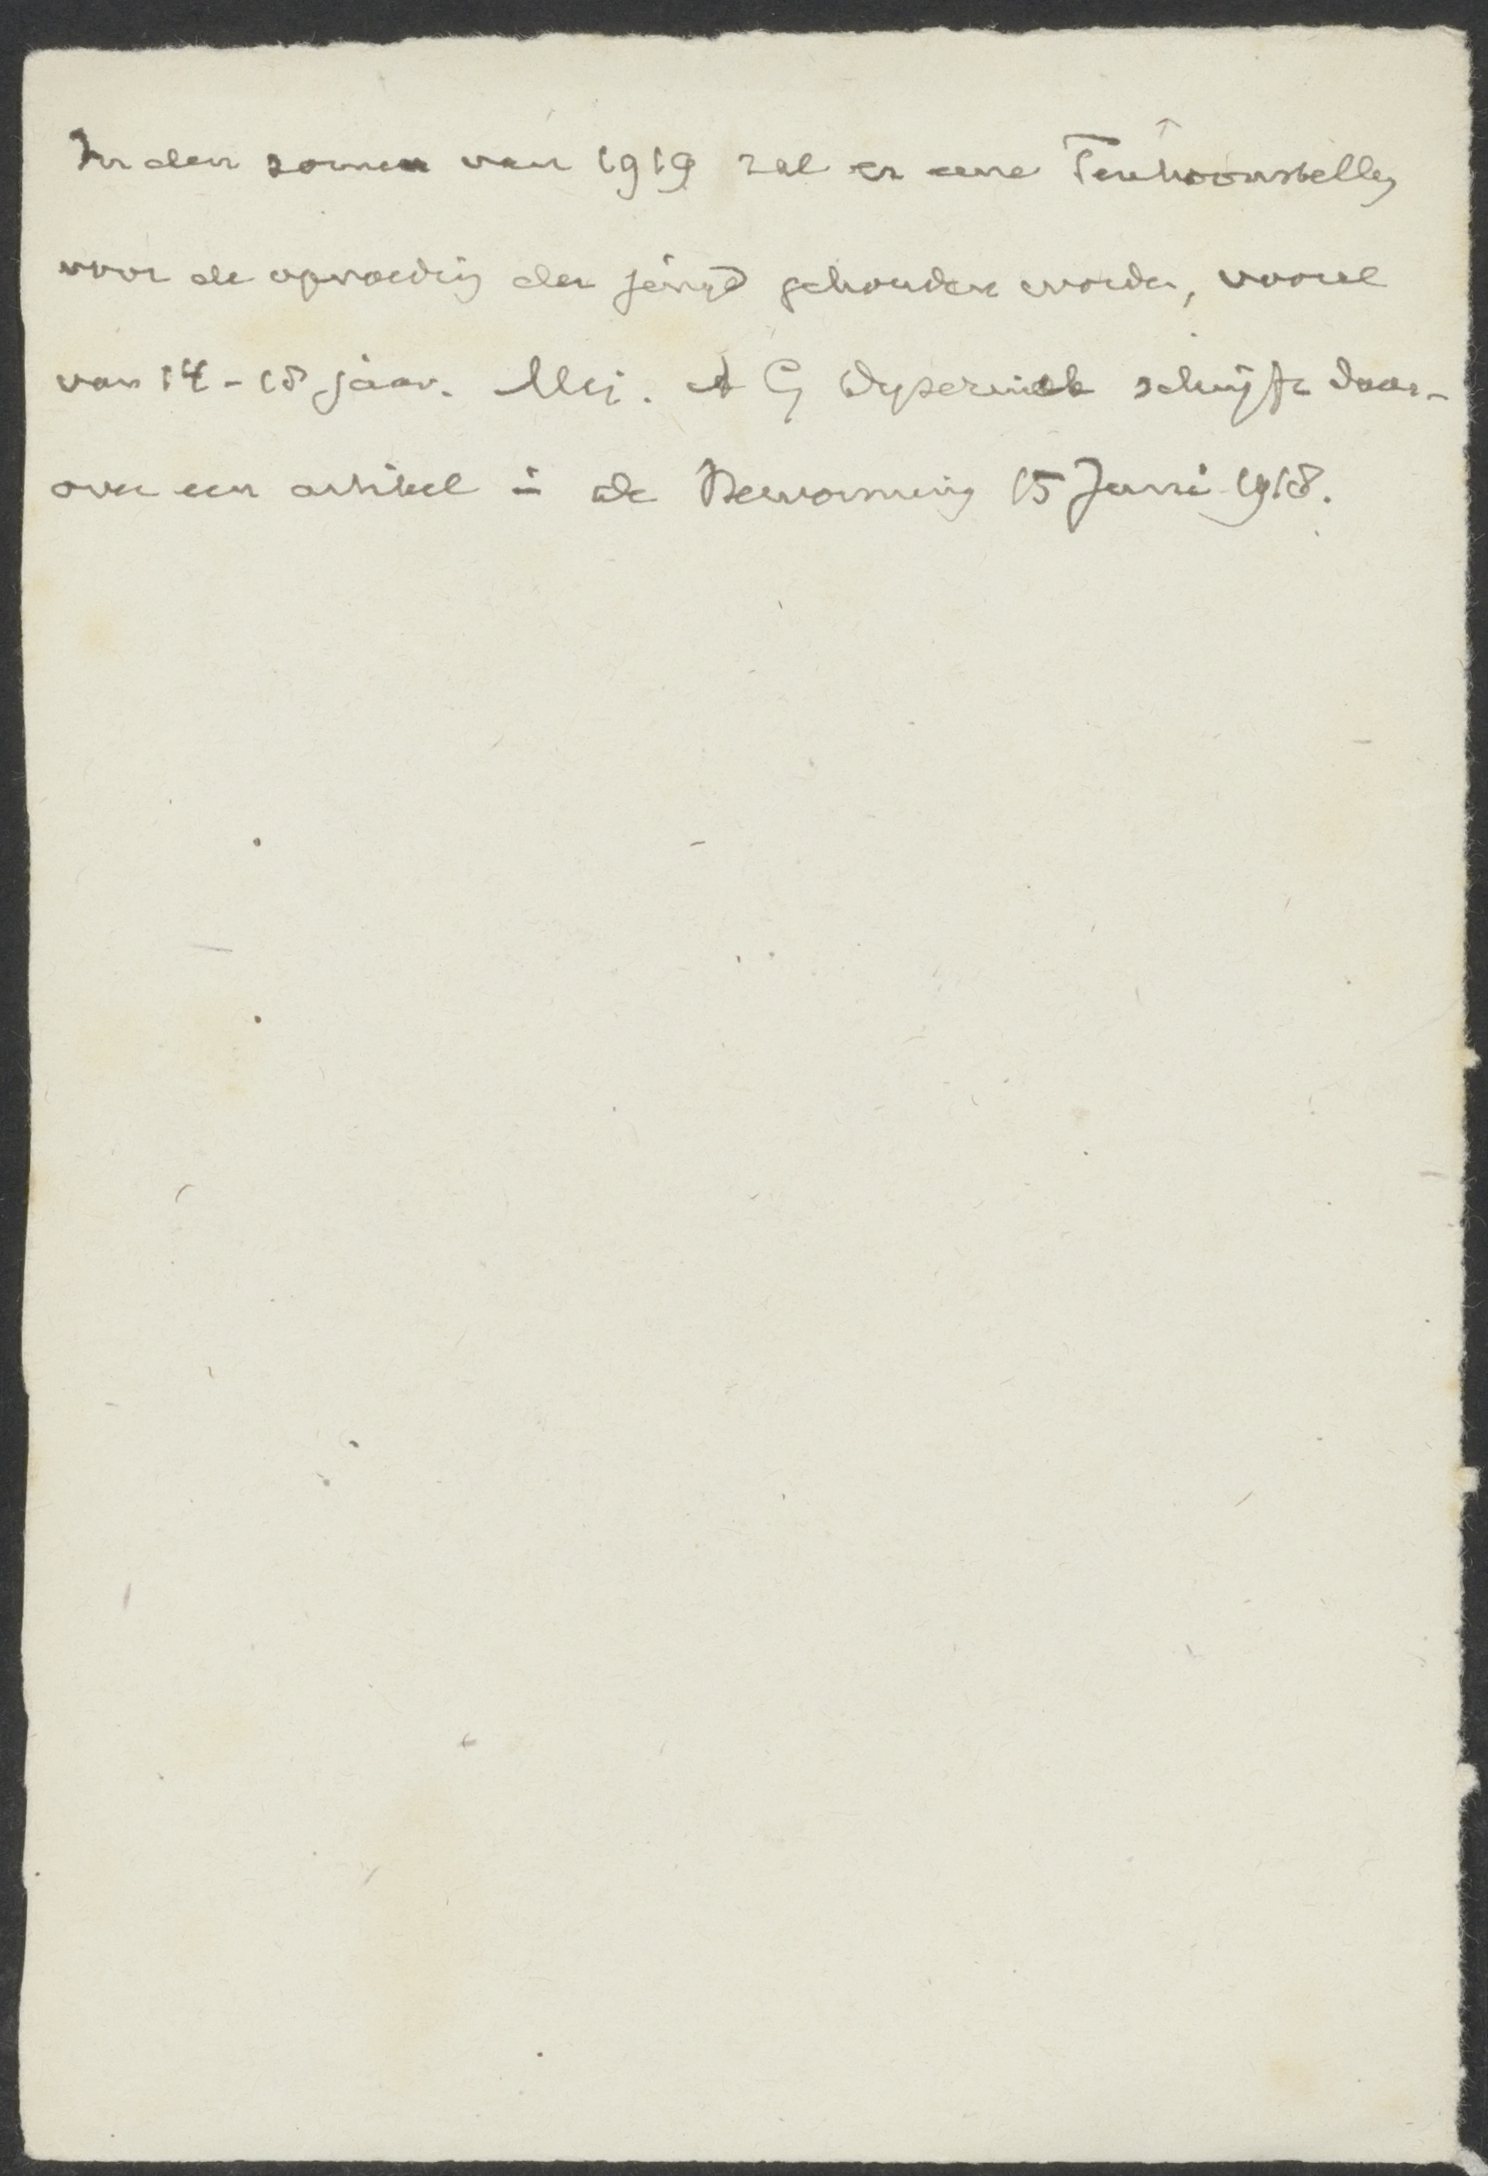 In den zomer van 1919 zal er eene Tentoonstelling
voor de opvoeding der jeugd gehouden worden, vooral
van 14-18 jaar. Mej. A G Dyserinck schrijft daar-
over een artikel in de Hervorming 15 Juni 1918.